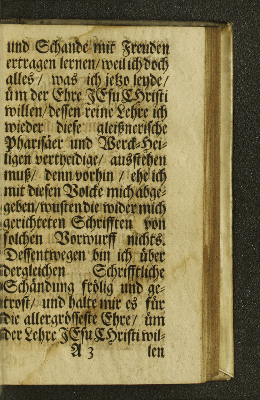 und Schande mir Freuden
ertragen lernen/ weil ich doch
alles/ was ich jetzo leyde/
üm der Ehre JEsu CHristi
willen/ dessen reine Lehre ich
wieder diese gleißnerische
Pharisäer und Werck-Hei-
ligen vertheidige/ ausstehen
muß/ denn vorhin/ ehe ich
mit diesen Volcke mich abge-
geben/ wusten die wider mich
gerichteten Schrifften von
solchen Vorwurff nichts.
Dessentwegen bin ich über
dergleichen Schrifftliche
Schändung frölig und ge-
trost/ und halte mir es für
die allergrösseste Ehre/ üm
der Lehre JEsu CHristi wil-
A 3 len